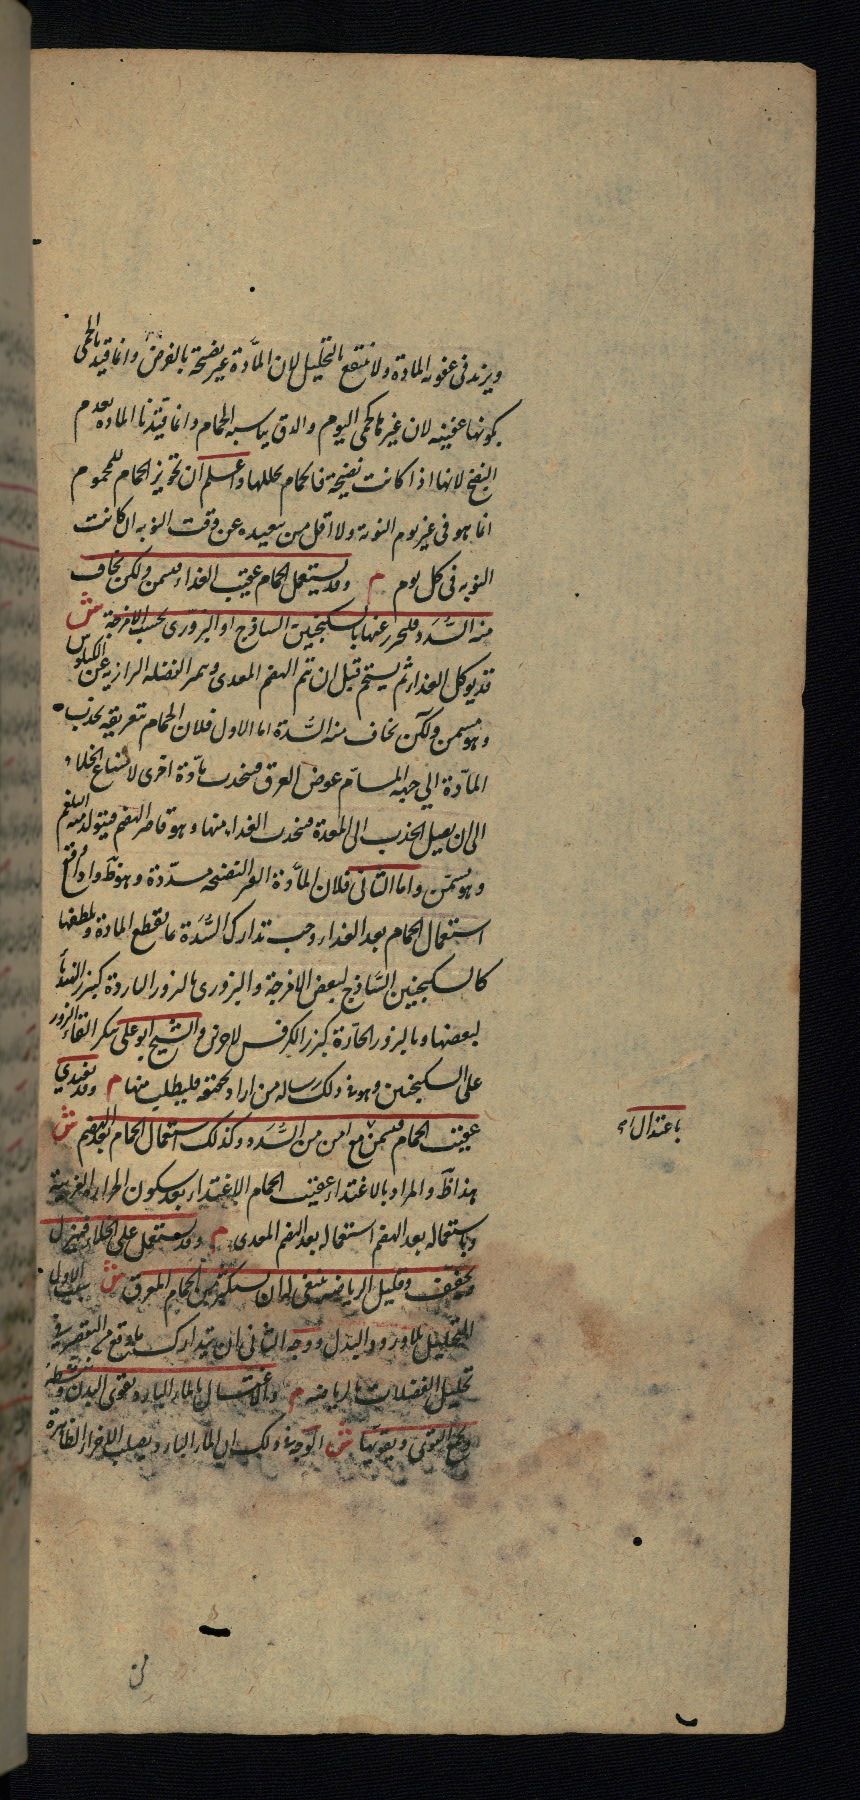 ويزيد في عفونة المادة ولا ينتفع بالتحليل لان المادة غير نضيجة بالفرض وانما قيد الحمى
بكونها عفنية لان غيرها كحمى اليوم والدق يناسبه الحمام وانما قيدنا المادة بعدم
النضج لانها اذا كانت نضيجة فالحمام يحللها واعلم ان تجويز الحمام للمحموم
انما هو في غير يوم النوبة ولا اقل من بعيده عن وقت النوبة ان كانت
النوبة في كل يوم م وقد يستعمل الحمام عقيب الغذاء فيسمن ولكن يخاف
منه السدد فليحرز عنها بالسكنجبين الساذج او البزوري بحسب الامزجة ش
قد يوكل الغذاء ثم يستحم قبل ان يتم الهضم المعدي ويميز الفضلة البرازية عن الكيلوس
وهو مسمن ولكن يخاف منه السدة اما الاول فلان الحمام بتعريقه يجذب
المادة الى جهة المسام عوض العرق فينجذب مادة اخرى لامتناع الخلاء
الى ان يصل الجذب الى المعدة فينجذب الغذاء منها وهو قاصر الهضم فيتولد منه البلغم
وهو يسمن واما الثاني فلان المادة الغير النضيجة مسددة وهو ظ واذا وقع
استعمال الحمام بعد الغذاء وجب تدارك السدة بما يقطع المادة ويلطفها
كالسكنجبين الساذج لبعض الامزجة والبزوري بالبزور الباردة كبزر الهندبا
لبعضها وبالبزور الحارة كبزر الكرفس لاخرى والشيخ ابو علي ينكر القاء البزور
على السكنجبين وله في ذلك رسالة من اراد تحققه فليطلب منها م وقد يغتذي
عقيب الحمام فيسمن مع امن من السدد وكذلك استعمال الحمام بعد الهضم ش
باعتدال
هذا ظ والمراد بالاغتذاء عقيب الحمام الاغتذاء بعد سكون الحرارة الغريبة
وباستعماله بعد الهضم استعماله بعد الهضم المعدي م وقد يستعمل على الخلاء فيهزل
ويجفف وقليل الرياضة ينبغي له ان يستكثر من الحمام المعرق ش سبب الاول
التحليل بلا ورود البدل ووجه الثاني ان يتدارك ما وقع من التقصير في
تحليل الفضلات بالرياضة م والاغتسال بالماء البارد يقوي البدن وينشطه
ويجمع القوى ويقويها ش الوجه في ذلك ان الماء البارد يصلب الاجزاء الظاهرة
من